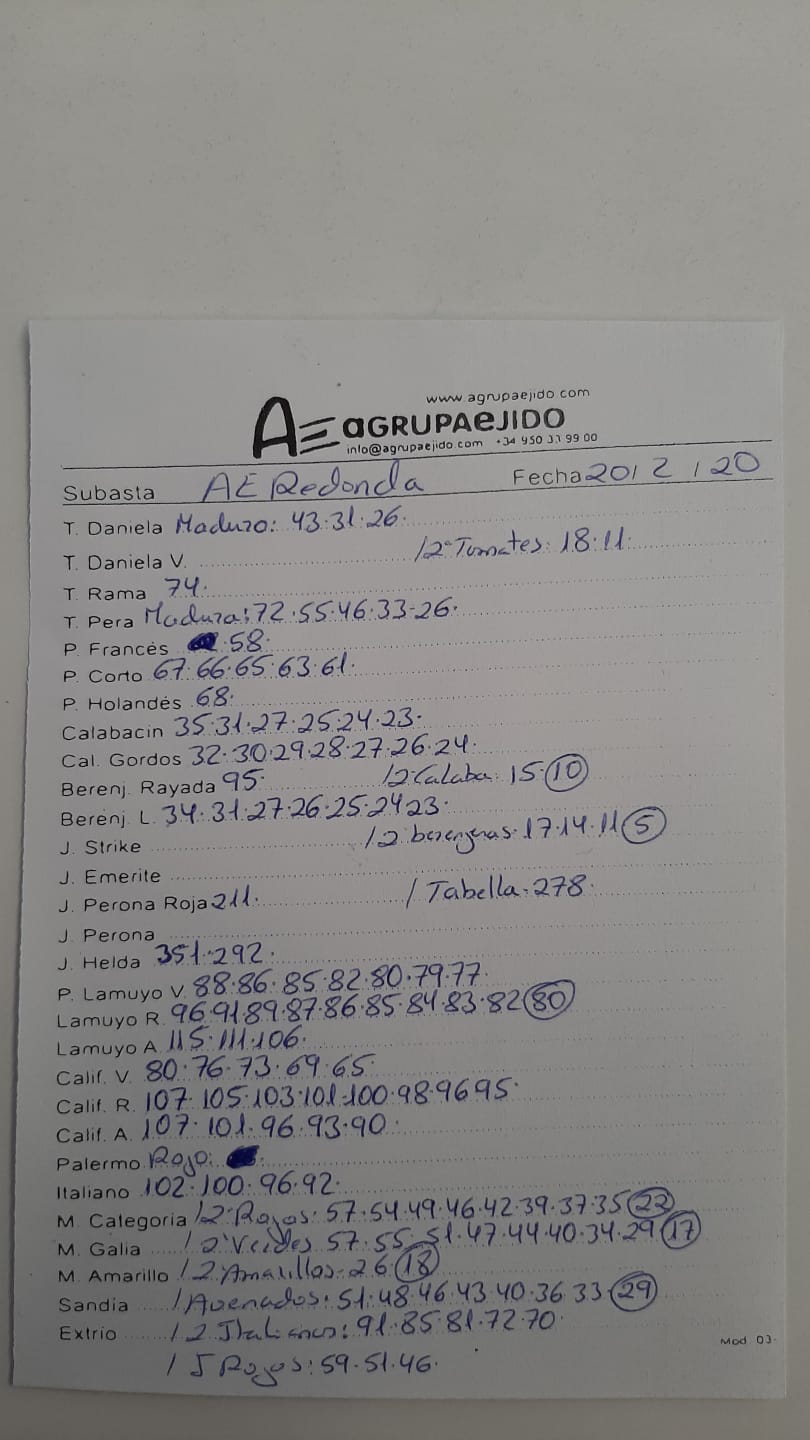 www.agrupaejido.com
AE AGRUPAEJIDO
info@agrupaejido.com +34 950 33 99 00
Subasta AE Redonda Fecha 20/2/20
T. Daniela Maduro: 43.31.26.
T. Daniela V. /2ª Tomates: 18.11.
T. Rama 74.
T. Pera Madura: 72.55.46.33-26.
P. Francés .58.
P. Corto 67.66.65.63.61.
P. Holandés 68.
Calabacin 35.31.27.25.24.23.
Cal. Gordos 32.30.29.28.27.26.24.
Berenj. Rayada 95. /2 Calaba: 15.10
Berenj. L. 34.31.27.26.25.24.23.
J. Strike /2 berenjenas.17.14.11 5
J. Emerite
J. Perona Roja 211. / Tabella.278.
J. Perona
J. Helda 351.292.
P. Lamuyo V. 88.86.85.82.80.79.77.
Lamuyo R. 96.91.89.87.86.85.84.83.82 80
Lamuyo A. 115.111.106.
Calif. V. 80.76.73.69.65.
Calif. R. 107.105.103.101.100.98.96.95.
Calif. A. 107.101.96.93.90.
Palermo Rojo:
Italiano 102.100.96.92.
M. Categoria /2ª Rojos: 57.54.49.46.42.39.37.35 23
M. Galia /2ª Verdes 57.55.51.47.44.40.34.29 17
M. Amarillo /2 Amarillos-26 18
Sandía /Avenados: 51.48.46.43.40.36.33 29
Extrío /2 Italianos: 91.85.81.72.70.
/J Rojos: 59.51.46.
Mod. 03.